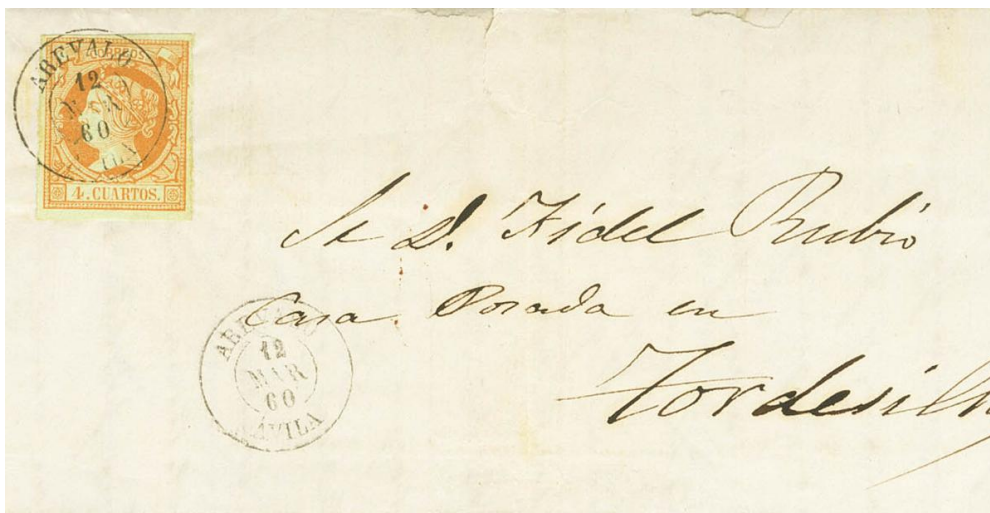 AREVALO
12
MAR
60
4. CUARTOS.
Sr D. Fidel Rubio
Casa Posada en
Tordesill
12
MAR
60
ÁVILA